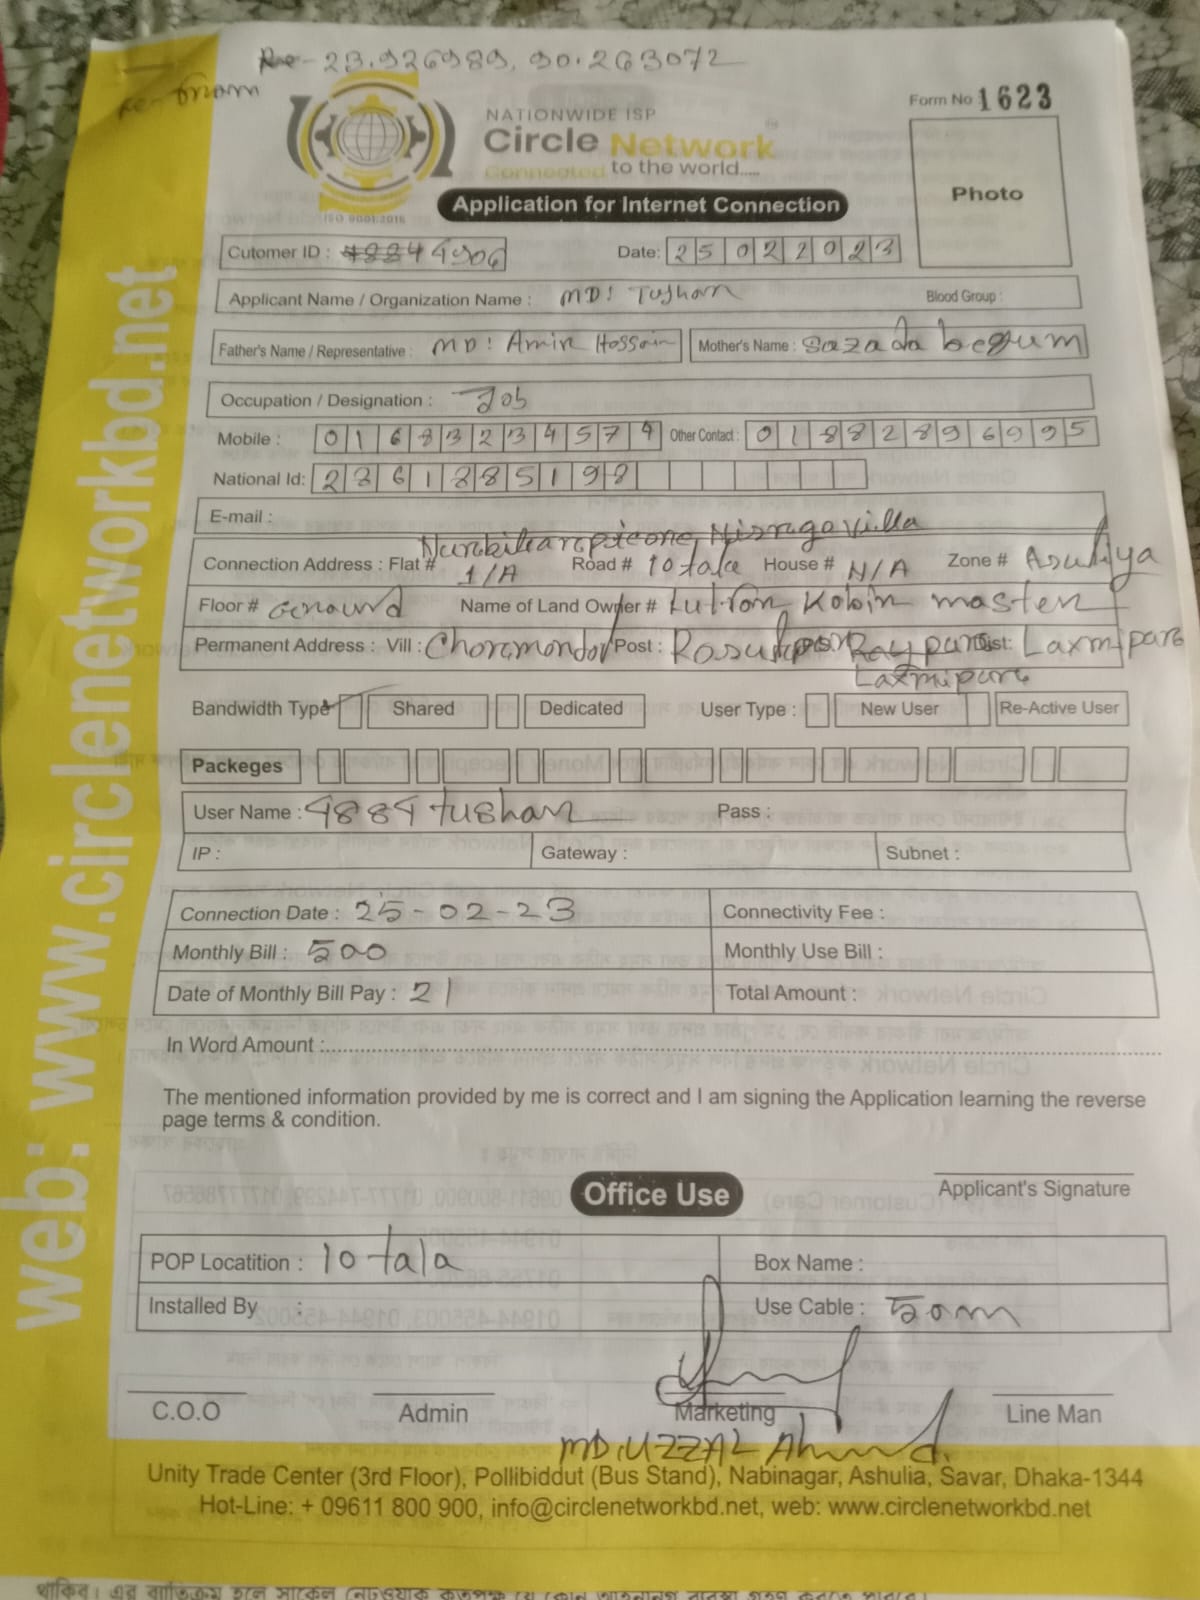 23.926989, 90.263072
NATIONWIDE ISP
Circle Network
Connected to the world.....
ISO 9001:2015
Form No 1623
Photo
Application for Internet Connection
Cutomer ID : 4906
Date: 25022023
Applicant Name / Organization Name : MD: Tushar
Blood Group :
Father's Name / Representative : MD: Amir Hossain
Mother's Name : Sazada begum
Occupation / Designation : Job
Mobile : 01683234574
Other Contact : 01882896995
National Id:
E-mail :
Nisrga Villa
Connection Address : Flat # 1/A Road # 10 tala House # N/A Zone # Asuliya
Floor # Ground Name of Land Owner # Lutfor, Kobir master
Permanent Address : Vill : Post : Raypura Dist: Laxmipura
Laxmipura
Bandwidth Type Shared Dedicated User Type : New User Re-Active User
Packeges
User Name : 4884tushar Pass :
IP : Gateway : Subnet :
Connection Date : 25-02-23 Connectivity Fee :
Monthly Bill : 500 Monthly Use Bill :
Date of Monthly Bill Pay : 21 Total Amount :
In Word Amount :
The mentioned information provided by me is correct and I am signing the Application learning the reverse
page terms & condition.
Applicant's Signature
Office Use
POP Locatition : 10 tala Box Name :
Installed By : Use Cable : 50m
C.O.O Admin Marketing Line Man
MD. UZZAL Ahmed.
Unity Trade Center (3rd Floor), Pollibiddut (Bus Stand), Nabinagar, Ashulia, Savar, Dhaka-1344
Hot-Line: + 09611 800 900, info@circlenetworkbd.net, web: www.circlenetworkbd.net
web: www.circlenetworkbd.net